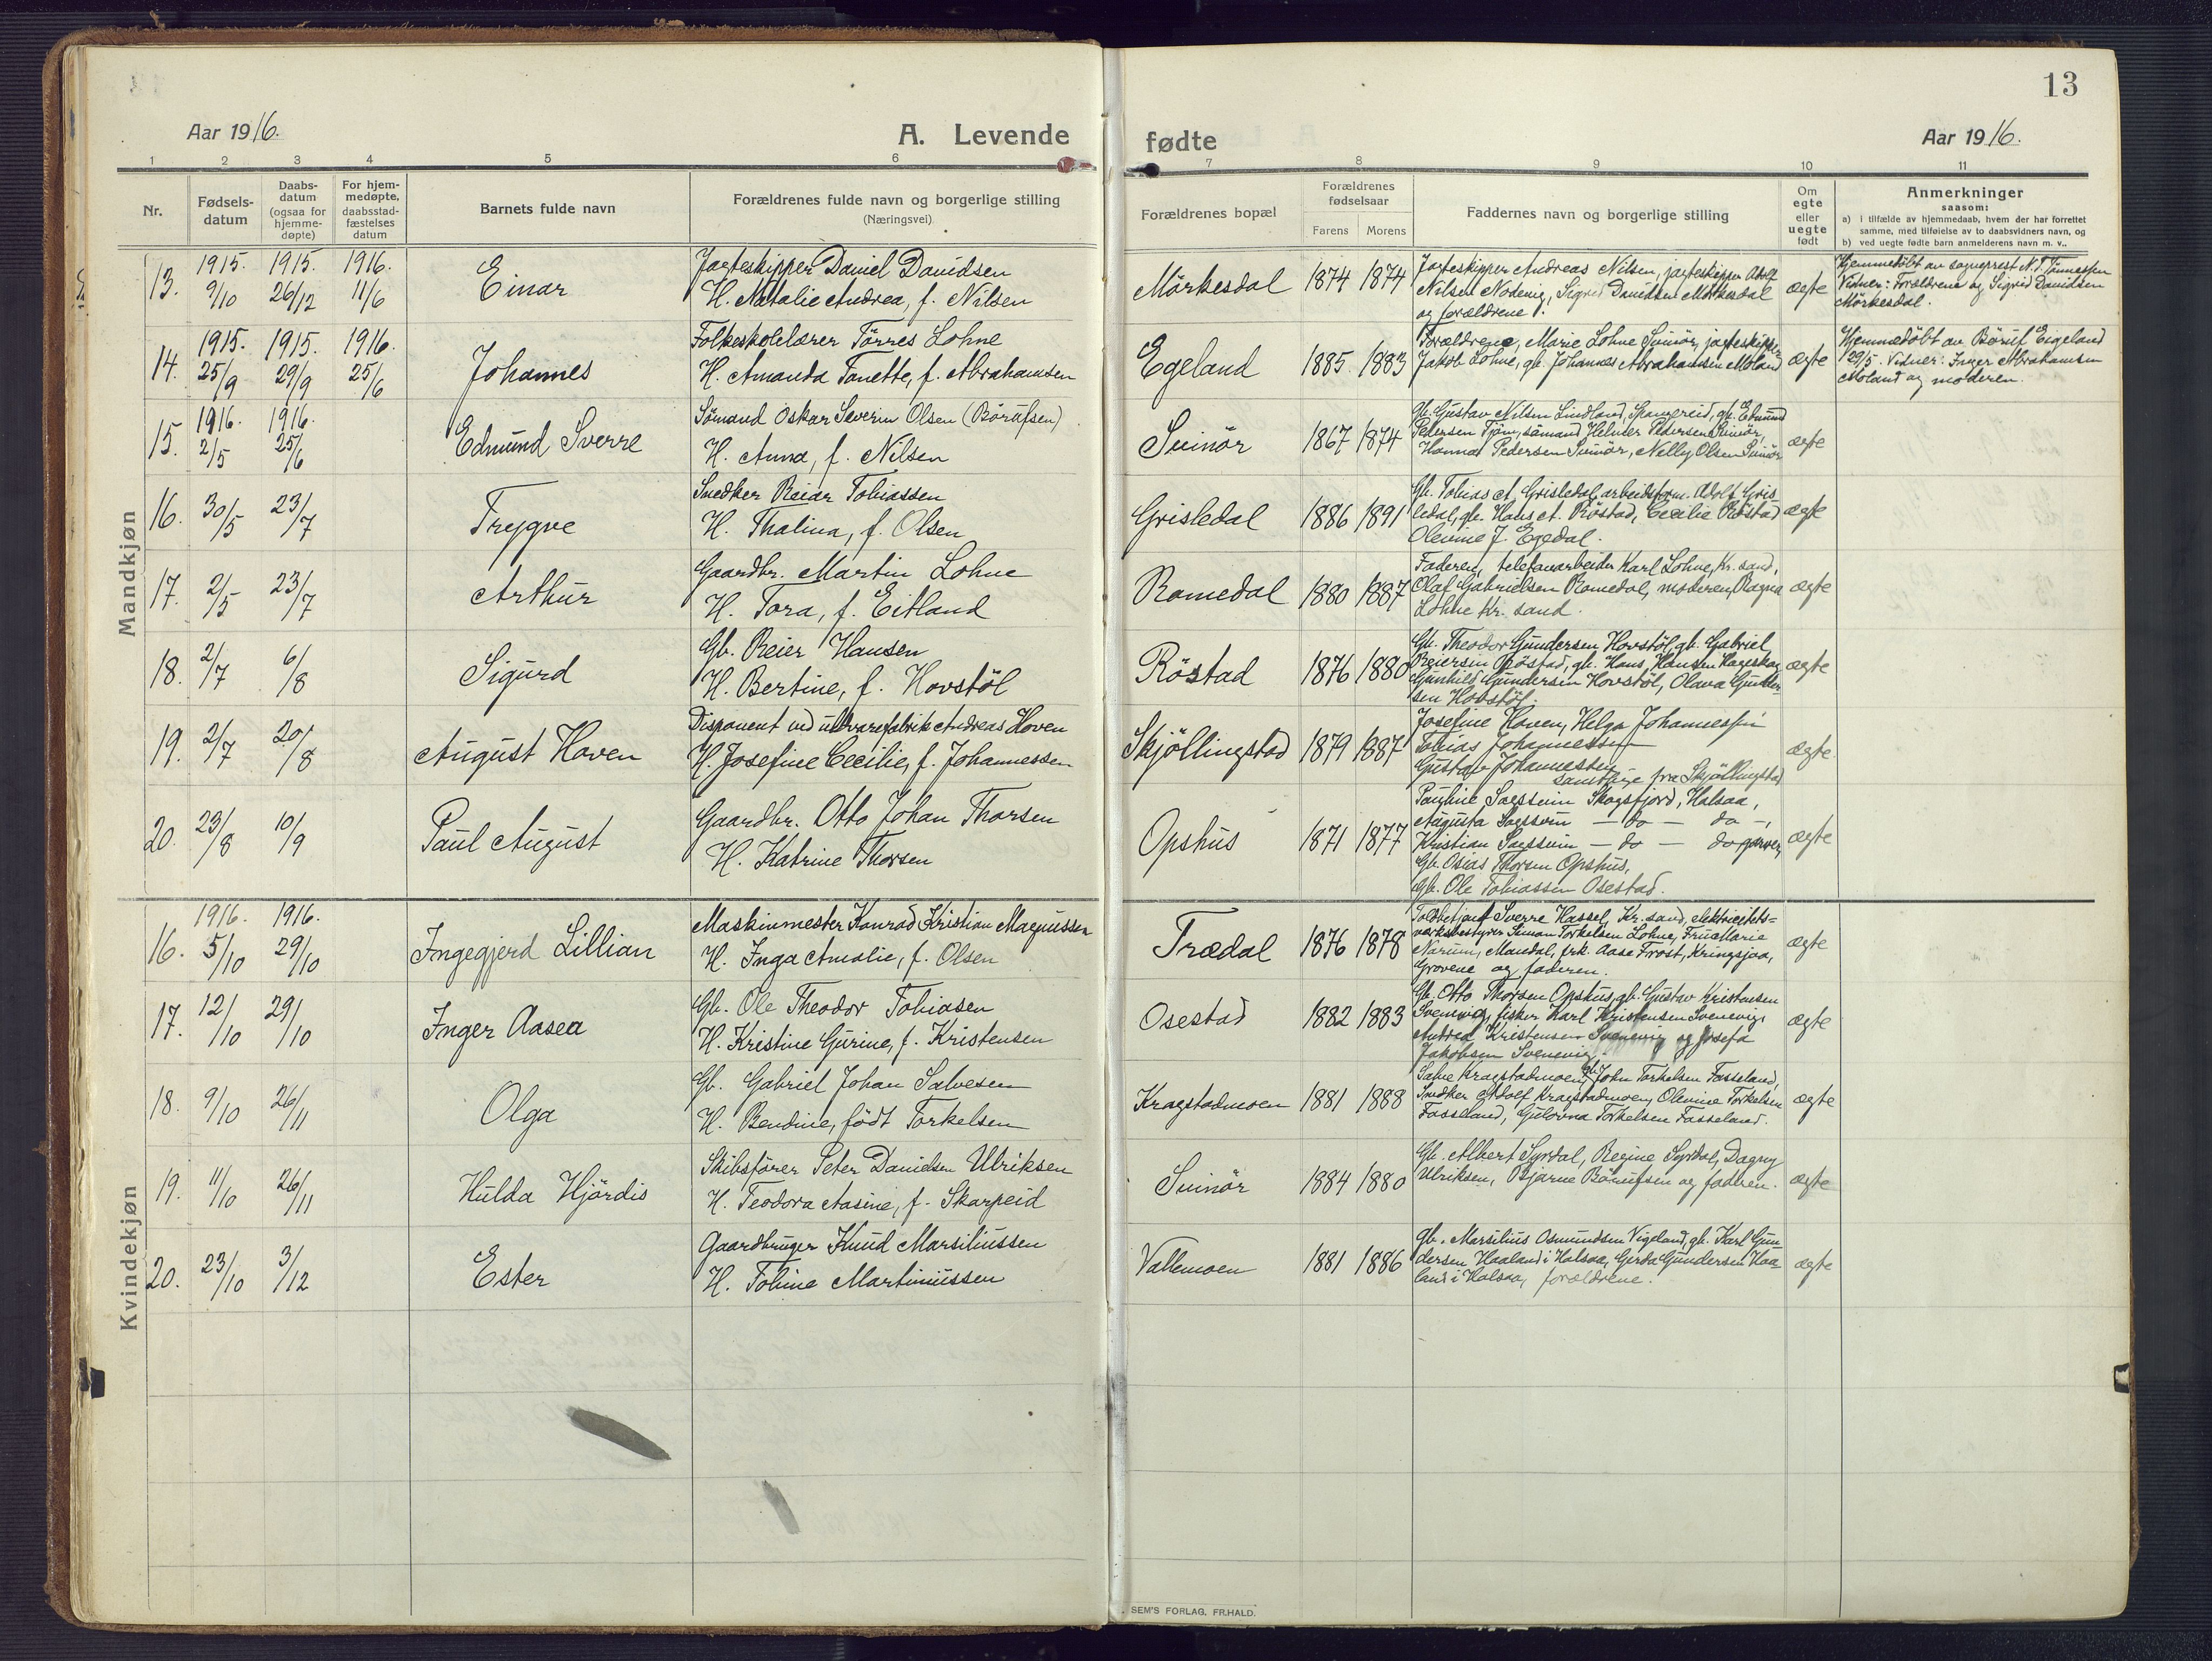 13
Aar 1916.
A. Levende
fødte
Aar 1916.
1 2 3 4 5 6 7 8 9 10 11
Nr.
Fødsels-
datum
Daabs-
datum
(ogsaa for
hjemme-
døpte)
For hjem-
medøpte,
daabsstad-
fæstelses
datum
Barnets fulde navn
Forældrenes fulde navn og borgerlige stilling
(Næringsvei)
Forældrenes bopæl
Forældrenes
fødselsaar
Farens Morens
Faddernes navn og borgerlige stilling
Om
egte
eller
uegte
født
Anmerkninger
saasom:
a) i tilfælde av hjemmedaab, hvem der har forrettet
samme, med tilføielse av to daabsvidners navn, og
b) ved uegte fødte barn anmelderens navn m. v..
Mandkjøn
13.
1915.
9/10
1915.
26/12
1916.
11/6
Einar
Jagteskipper Daniel Davidsen
H. Natalie Andrea, f. Nilsen
Mörkesdal
1874 1874
Jagteskipper Andreas Nilsen, jagteskipper Adolf
Nilsen Nodevig, Sigrid Davidsen Mörkesdal
og forældrene.
ægte
Hjemmedöbt av sogneprest N. J. Tönnessen
Vidner: Forældrene og Sigrid Davidsen
Mörkesdal.
14.
1915.
25/9
1915.
29/9
1916.
25/6
Johannes
Folkeskolelærer Törres Lohne
H. Amanda Tanette, f. Abrahamsen
Egeland
1885. 1883
Forældrene, Marie Lohne Svinör, jagteskipper
Jakob Lohne, gb. Johannes Abrahamsen Moland
ægte
Hjemmedöbt av Börüf Eigeland
29/5. Vidner: Inger Abrahamsen
Moland og moderen.
15.
1916.
2/5
1916.
25/6
Edmünd Sverre
Sömand Oskar Severin Olsen (Börüfsen)
H. Anna, f. Nilsen
Svinör
1867 1874
Gb. Güstav Nilsen Lindland, Spangereid, gb. Edmünd
Pedersen Tjöm, sömand Helmer Pedersen Svinör,
Hanna Pedersen Svinör, Nelly Olsen Svinör
ægte
16.
30/5
23/7
Trygve
Snedker Reiar Tobiassen
H. Thalina, f. Olsen
Grisledal
1886 1891
Gb. Tobias A. Grisledal, arbeidsform. Adolf Gris
ledal, gb. Hans A. Röstad, Cecilie Röstad
Olevine J. Egedal.
ægte
17.
2/5
23/7
Arthür
Gaardbr. Martin Lohne
H. Tora, f. Eitland
Ramedal
1880 1887
Faderen, telefonarbeider Karl Lohne, Kr. sand,
Olaf Gabrielsen Ramedal, moderen, Ragna
Lohne Kr. sand.
ægte
18.
2/7
6/8
Sigürd
Gb. Reier Hansen
H. Bertine, f. Hovstöl
Röstad
1876 1880
Gb. Theodor Gündersen Hovstöl, gb. Gabriel
Reiersen Röstad, gb. Hans Hansen Hageskog
Günhild Gündersen Hovstöl, Olava Günder-
sen Hovstöl.
ægte
19.
2/7
20/8
August Hoven
Disponent ved uldvarefabrik Andreas Hoven
H. Josefine Cecilie, f. Johannessen
Skjöllingstad
1879 1887
Josefine Hoven, Helga Johannessen
Tobias Johannessen
Güstav Johannessen
samtlige fra Skjöllingstad
ægte
20.
23/8
10/9
Paül Aügüst
Gaardbr. Otto Johan Thorsen
H. Katrine Thorsen
Opshüs
1871 1877
Pauline Saessein Skogsfjord, Halsaa,
Augusta Saessein — do — do —,
Kristian Saessein — do — do garver,
Gb. Osias Thorsen Opshüs,
Gb. Ole Tobiassen Osestad.
ægte
Kvindekjøn
16.
1916.
5/10
1916.
29/10
Ingegjerd Lillian
Maskinmester Konrad Kristian Magnüssen
H. Inga Amalie, f. Olsen
Trædal
1876 1878
Toldbetjent Sverre Hassel, Kr. sand, elektricitets-
verksbestyrer Simon Torkelsen Lohne, Früe Marie
Narum, Mandal, frk. Aase Frost, Kringsjaa,
Grovene og faderen.
ægte
17.
12/10
29/10
Inger Aasea
Gb. Ole Theodor Tobiasen
H. Kristine Gürine, f. Kristensen
Osestad
1882 1883
Gb. Otto Thorsen Opshüs, gb. Güstav Kristensen
Svenevig, fisker Karl Kristensen Svenevig,
Andrea Kristensen Svenevig og Josefa
Jakobsen Svenevig.
ægte
18.
9/10
26/11
Olga
Gb. Gabriel Johan Salvesen
H. Bendine, födt Torkelsen
Kragstadmoen
1881 1888
Salve Kragstadmoen, gb. John Torkelsen Fasseland,
Snedker Adolf Kragstadmoen, Olevine Torkelsen
Fasseland, Gülovna Torkelsen Fasseland.
ægte
19.
11/10
26/11
Hülda Hjördis
Skibsförer Peter Danielsen Ulriksen
H. Teodora Aasine, f. Skarpeid
Svinör
1884 1880
Gb. Albert Syrdal, Regine Syrdal, Dagny
Ulriksen, Bjarne Börüfsen og faderen.
ægte
20.
23/10
3/12
Ester
Gaardbruger Knüd Marsiliüssen
H. Tobine Martiniüssen
Vallemoen
1881 1886
Gb. Marsiliüs Osmündsen Vigeland, gb. Karl Gün-
dersen Haaland i Halsaa, Gerda Gündersen Haa-
land i Halsaa, forældrene.
ægte
SEM'S FORLAG, FR.HALD.